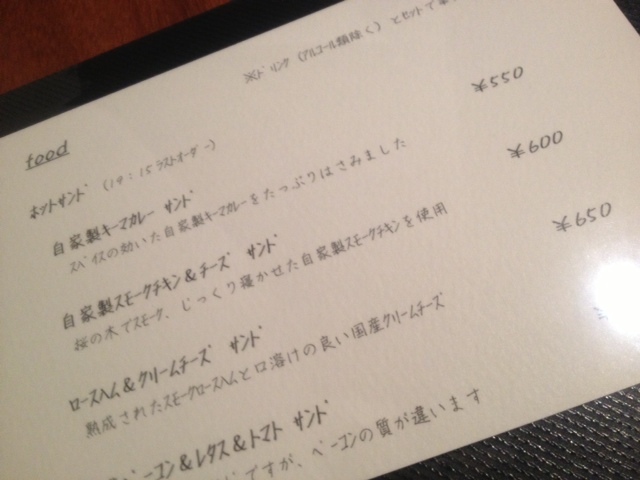 ※ドリンク（アルコール類除く）とセットで
food
ホットサンド（19：15ラストオーダー）
自家製キーマカレー サンド ¥550
スパイスの効いた自家製キーマカレーをたっぷりはさみました
自家製スモークチキン&チーズ サンド ¥600
桜の木でスモーク、じっくり寝かせた自家製スモークチキンを使用
ロースハム&クリームチーズ サンド ¥650
熟成されたスモークロースハムと口溶けの良い国産クリームチーズ
ベーコン&レタス&トマト サンド
ですが、ベーコンの質が違います